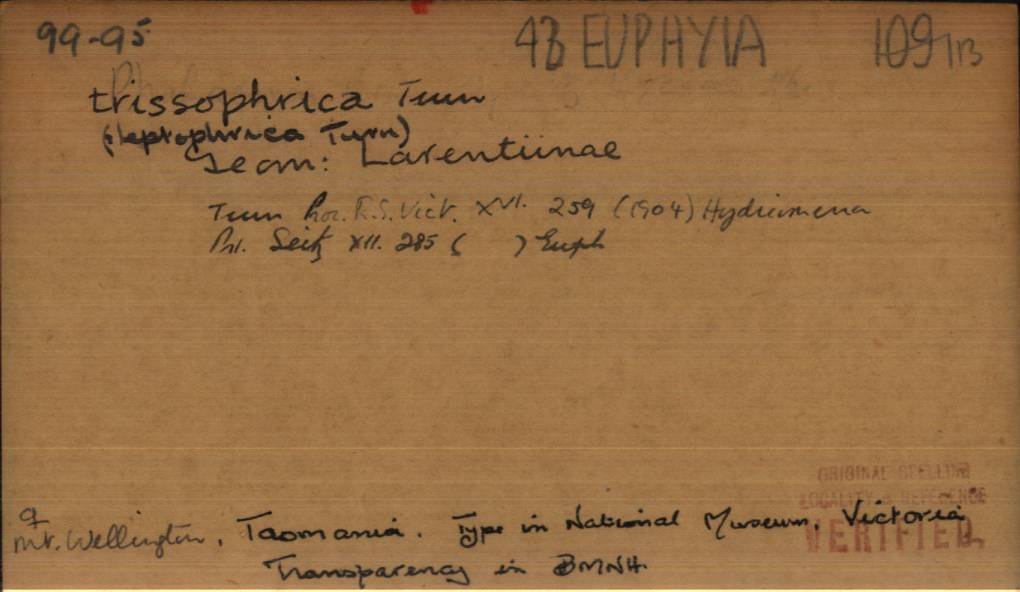 99-95 4B EUPHYIA 109/13
trissophrica Turn
(leptophrica Turn)
Geom: Larentiinae
Turn Proc. R.S. Vict. XVI. 259 (1904) Hydriomena
Prt. Seitz XII. 285 ( ) Euph
ORIGINAL SPELLING
LOCALITY & REFERENCE
VERIFIED.
♀
Mt. Wellington, Tasmania. Type in National Museum, Victoria
Transparency in BMNH.